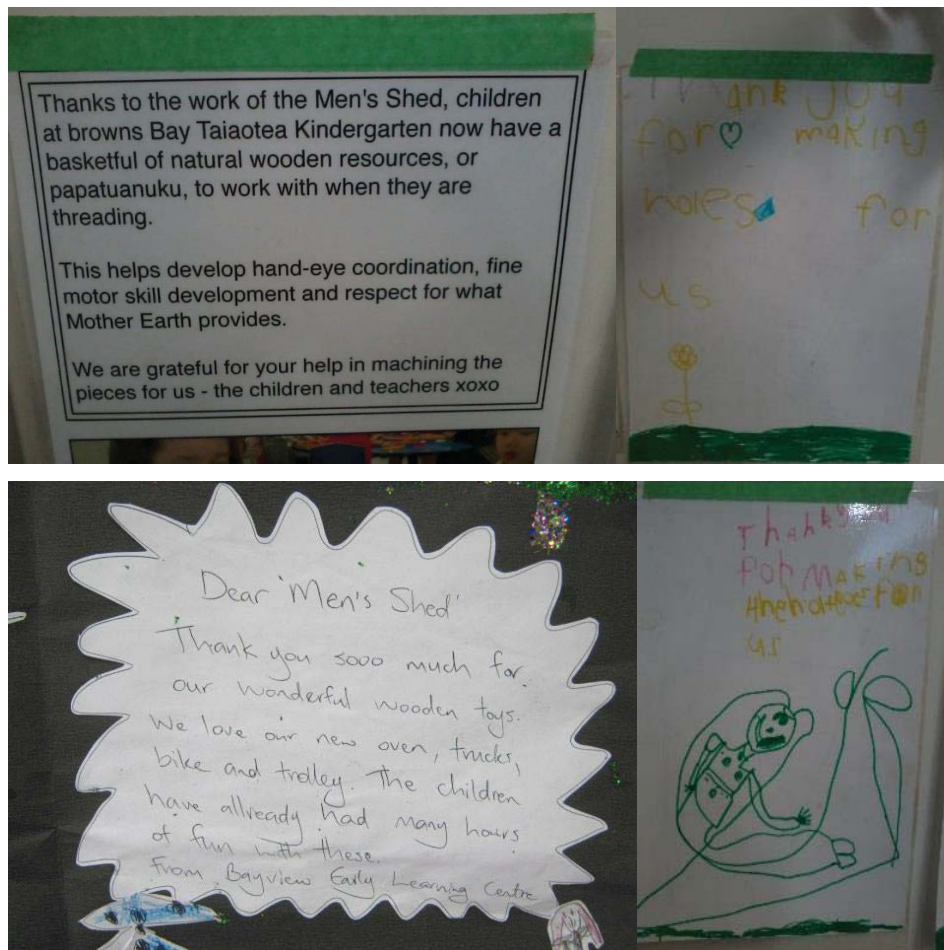 Thanks to the work of the Men's Shed, children
at browns Bay Taiaotea Kindergarten now have a
basketful of natural wooden resources, or
papatuanuku, to work with when they are
threading.
This helps develop hand-eye coordination, fine
motor skill development and respect for what
Mother Earth provides.
We are grateful for your help in machining the
pieces for us - the children and teachers xoxo
Thank you
for making
holes for
us
Dear 'Men's Shed'
Thank you sooo much for
our wonderful wooden toys.
We love our new oven, trucks,
bike and trolley. The children
have allready had many hours
of fun with these.
From Bayview Early Learning Centre
for Making
us